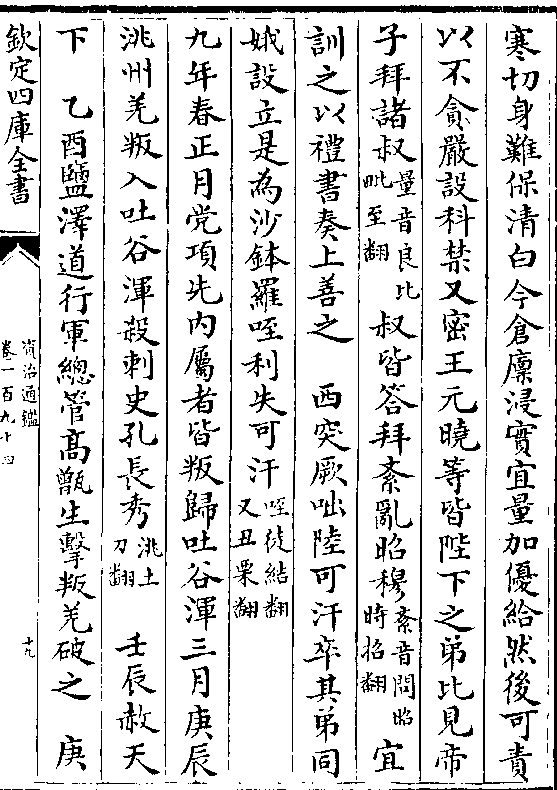 寒切身難保清白今倉廩浸實宜量加優給然後可責
以不貪嚴設科禁又密王元曉等皆陛下之弟比見帝
子拜諸叔量音良比毗至翻叔皆答拜紊亂昭穆紊音問昭時招翻宜
訓之以禮書奏上善之 西突厥咄陸可汗卒其弟同
娥設立是為沙鉢羅咥利失可汗咥徒結翻又丑栗翻
九年春正月党項先内屬者皆叛歸吐谷渾三月庚辰
洮州羌叛入吐谷渾殺刺史孔長秀洮土刀翻 壬辰赦天
下 乙酉鹽澤道行軍總管髙甑生擊叛羌破之 庚
欽定四庫全書
資治通鑑
卷一百九十四
十九